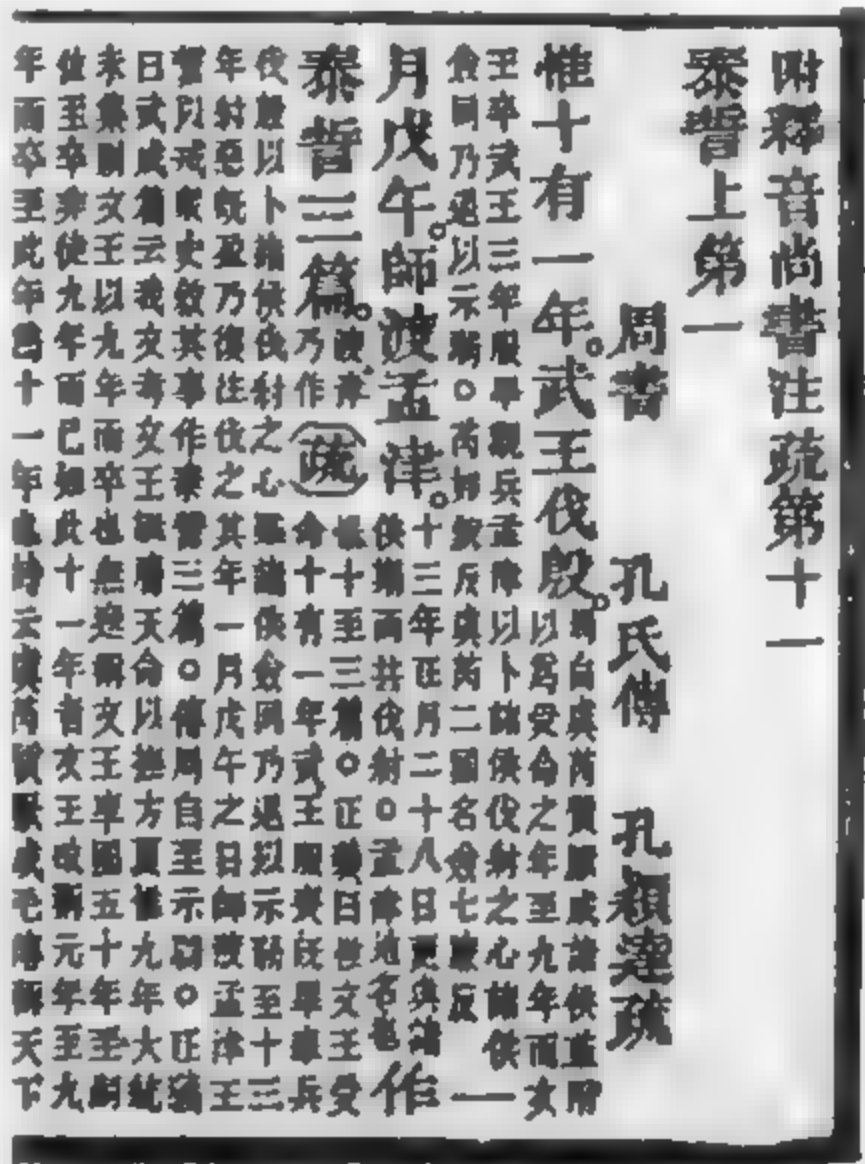 附釋音尚書注疏第十一
泰誓上第一
周書 孔氏傳 孔穎達疏
惟十有一年武王伐殷
周自虞芮質厥成諸侯並附
以爲受命之年至九年而文
王卒武王三年服畢觀兵孟津以卜諸侯伐紂之心諸侯
僉同乃退以示弱○芮如銳反虞芮二國名僉七廉反 一
月戊午師渡孟津
十三年正月二十八日更與諸
侯期而共伐紂○孟津地名也 作
泰誓三篇
渡津
乃作
疏
惟十至三篇○正義曰惟文王受
命十有一年武王服喪既畢舉兵
伐殷以卜諸侯伐紂之心雖諸侯僉同乃退以示弱至十三
年紂惡既盈乃復往伐之其年一月戊午之日師渡孟津王
誓以戒眾史敘其事作泰誓三篇○傳周自至示弱○正義
曰武成篇云我文考文王誕膺天命以撫方夏惟九年大統
未集則文王以九年而卒也無逸稱文王享國五十年至嗣
位至卒非徒九年而已知此十一年者文王改稱元年至九
年而卒至此年爲十一年也詩云虞芮質厥成毛傳稱天下